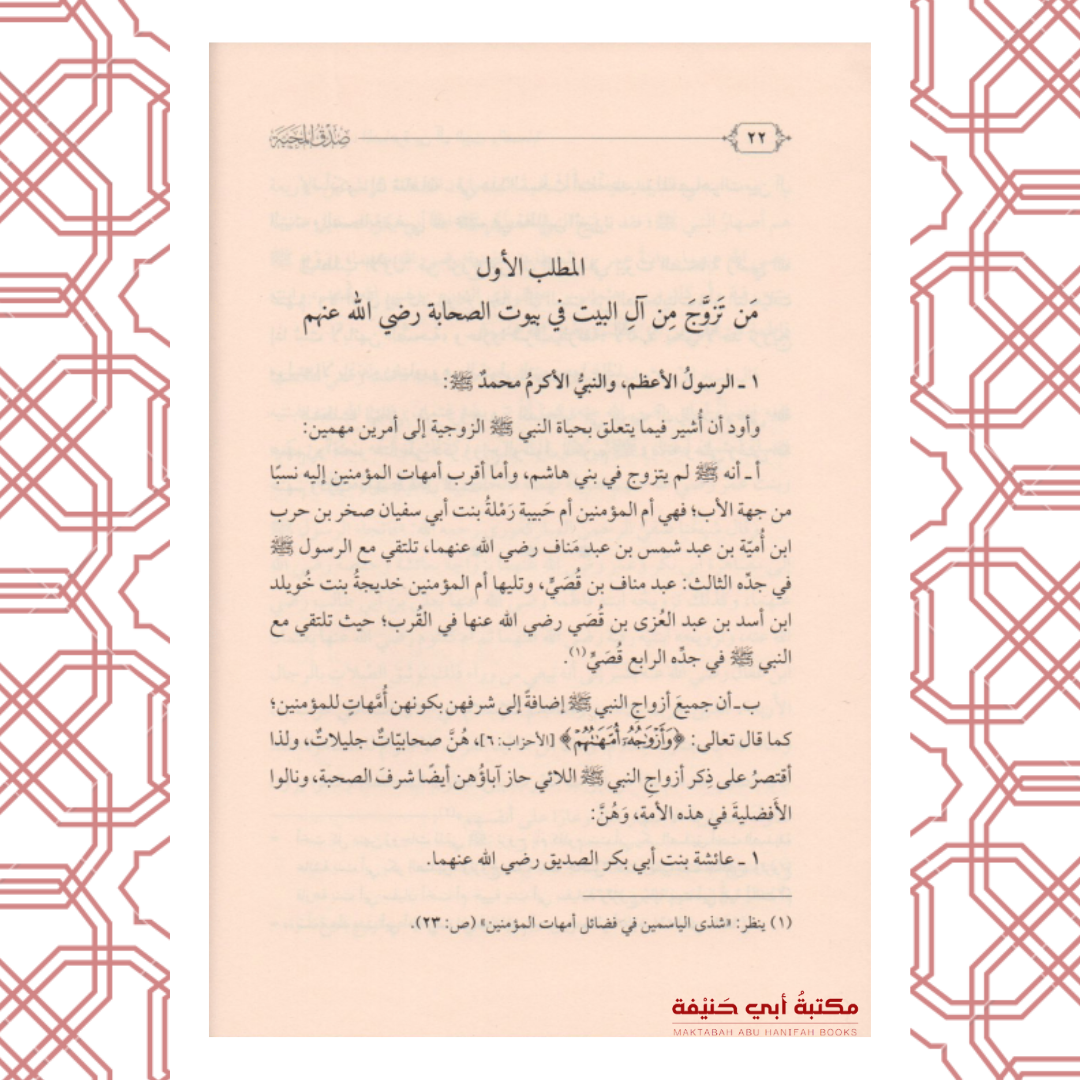 ٢٢ صدق المحبة
المطلب الأول
من تزوَّج مِن آلِ البيت في بيوت الصحابة رضي الله عنهم
١ ـ الرسولُ الأعظم، والنبيُّ الأكرمُ محمدٌ ﷺ:
وأود أن أشير فيما يتعلق بحياة النبي ﷺ الزوجية إلى أمرين مهمين:
أ ـ أنه ﷺ لم يتزوج في بني هاشم، وأما أقرب أمهات المؤمنين إليه نسبًا
من جهة الأب؛ فهي أم المؤمنين أم حَبيبة رَمْلةُ بنت أبي سفيان صخر بن حرب
ابن أُميّة بن عبد شمس بن عبد مَناف رضي الله عنهما، تلتقي مع الرسول ﷺ
في جدِّه الثالث: عبد مناف بن قُصَيٍّ، وتليها أم المؤمنين خديجةُ بنت خُويلد
ابن أسد بن عبد العُزى بن قُصَي رضي الله عنها في القُرب؛ حيث تلتقي مع
النبي ﷺ في جدِّه الرابع قُصَيٍّ(١).
ب ـ أن جميعَ أزواجِ النبي ﷺ إضافةً إلى شرفهن بكونهن أُمَّهاتٍ للمؤمنين؛
كما قال تعالى: ﴿وَأَزْوَٰجُهُۥٓ أُمَّهَٰتُهُمْ﴾ [الأحزاب: ٦]، هُنَّ صحابيّاتٌ جليلاتٌ، ولذا
أقتصرُ على ذِكر أزواجِ النبي ﷺ اللائي حاز آباؤُهن أيضًا شرفَ الصحبة، ونالوا
الأَفضليةَ في هذه الأمة، وَهُنَّ:
١ ـ عائشة بنت أبي بكر الصديق رضي الله عنهما.
(١) ينظر: «شذى الياسمين في فضائل أمهات المؤمنين» (ص: ٢٣).
مكتبةُ أبي حَنيْفة
MAKTABAH ABU HANIFAH BOOKS